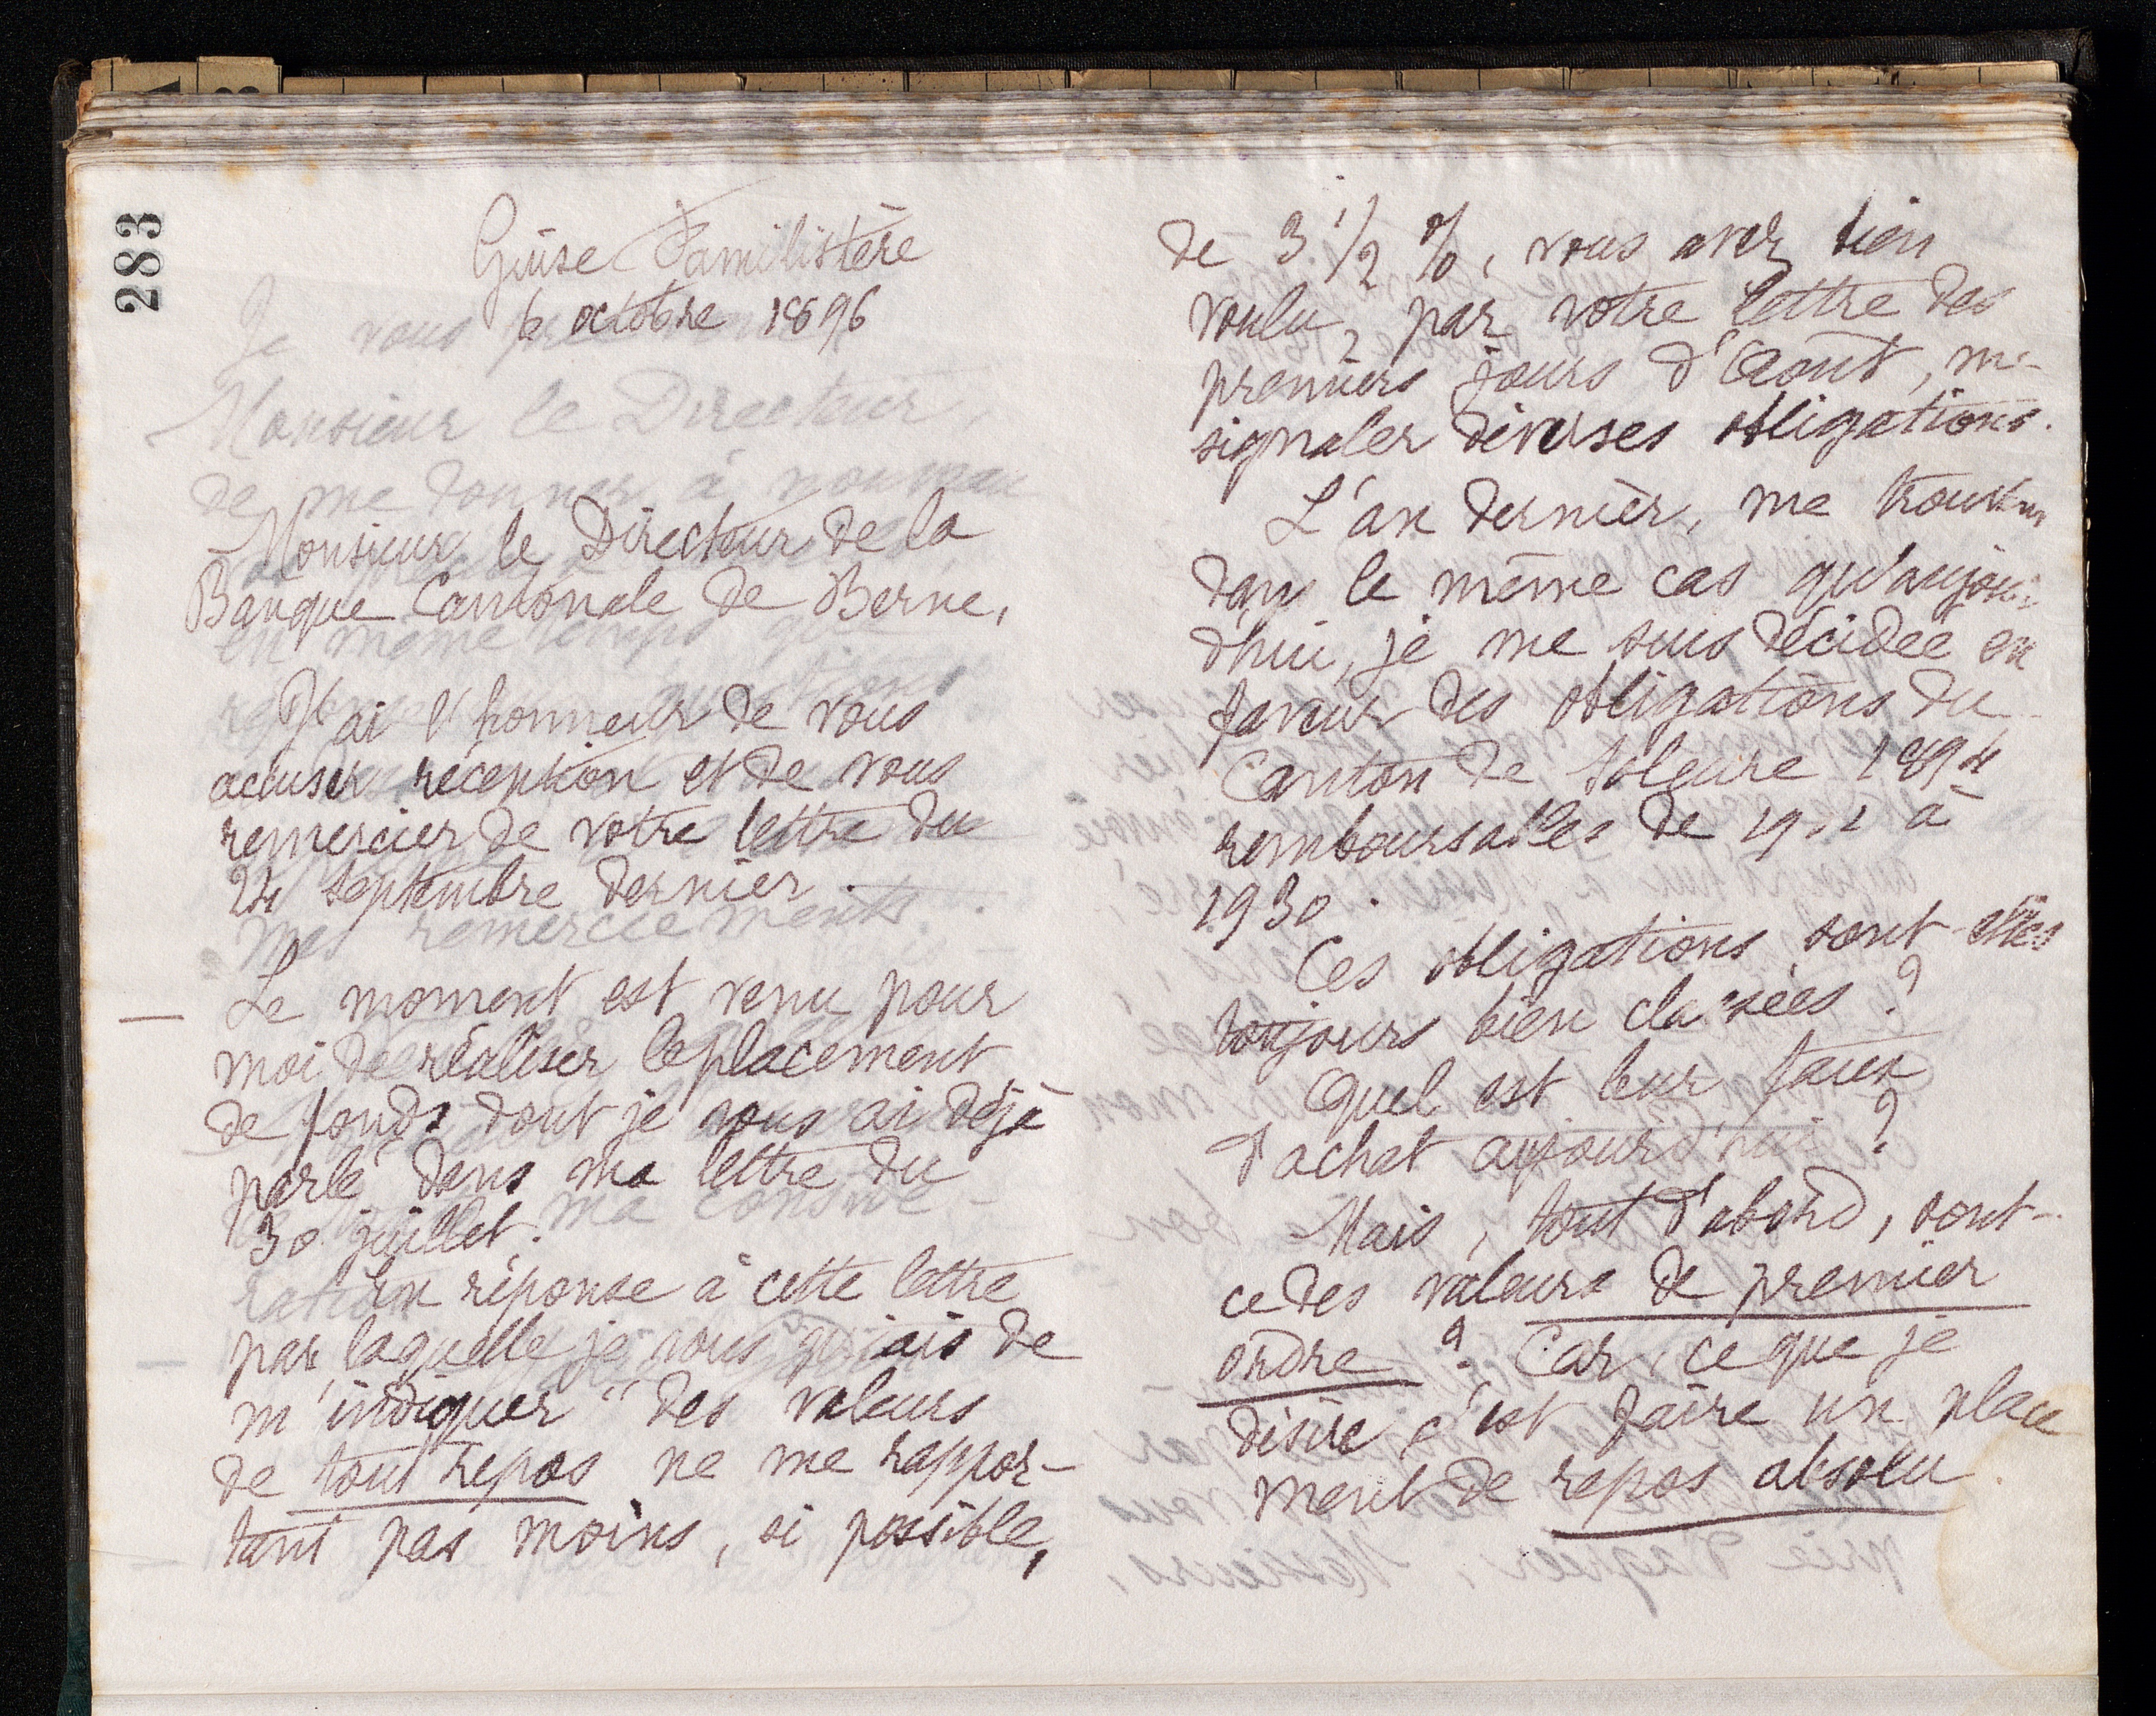 283
Guise Familistère
6 octobre 1896
Monsieur le Directeur de la
Banque Cantonale de Berne,
J'ai l'honneur de vous
accuser réception et de vous
remercier de votre lettre du
24 septembre dernier.
Le moment est venu pour
moi de réaliser le placement
de fonds dont je vous ai déjà
parlé dans ma lettre du
30 juillet.
En réponse à cette lettre
par laquelle je vous priais de
m'indiquer "des valeurs
de tout repos ne me rappor-
tant pas moins, si possible,
de 3 1/2 %, vous avez bien
voulu, par votre lettre des
premiers jours d'Août, me
signaler diverses obligations.
L'an dernier, me trouvant
dans le même cas qu'aujour-
d'hui, je me suis décidée en
faveur des obligations du
Canton de Soleure 1894
remboursables de à
1930.
Ces obligations sont-elles
toujours bien classées ?
Quel est leur taux
d'achat aujourd'hui ?
Mais, tout d'abord, sont-
ce des valeurs de premier
ordre ? Car, ce que je
désire c'est faire un place
ment de repos absolu